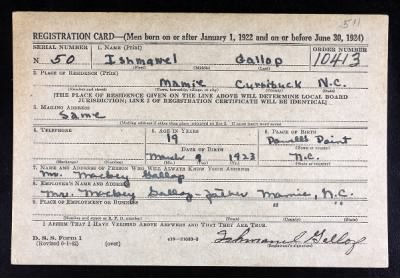 511
REGISTRATION CARD—(Men born on or after January 1, 1922 and on or before June 30, 1924)
SERIAL NUMBER 1. NAME (Print) ORDER NUMBER
N 50 Ishmawel Gallop 10413
(First) (Middle) (Last)
2. PLACE OF RESIDENCE (Print)
Mamie Currituck N.C.
(Number and street) (Town, township, village, or city) (County) (State)
[THE PLACE OF RESIDENCE GIVEN ON THE LINE ABOVE WILL DETERMINE LOCAL BOARD
JURISDICTION; LINE 2 OF REGISTRATION CERTIFICATE WILL BE IDENTICAL]
3. MAILING ADDRESS
Same
[Mailing address if other than place indicated on line 2. If same insert word same]
4. TELEPHONE 5. AGE IN YEARS 6. PLACE OF BIRTH
19 Powells Point
DATE OF BIRTH
March 9 1923 N.C.
(Exchange) (Number) (Mo.) (Day) (Yr.) (State or country)
7. NAME AND ADDRESS OF PERSON WHO WILL ALWAYS KNOW YOUR ADDRESS
Mr. Gallop
8. EMPLOYER'S NAME AND ADDRESS
Mr. Gallop - father Mamie, N.C.
9. PLACE OF EMPLOYMENT OR BUSINESS
(Number and street or R. F. D. number) (Town) (County) (State)
I AFFIRM THAT I HAVE VERIFIED ABOVE ANSWERS AND THAT THEY ARE TRUE.
D. S. S. Form 1
(Revised 6-1-42) (over) Ishmawel Gallop
(Registrant's signature)